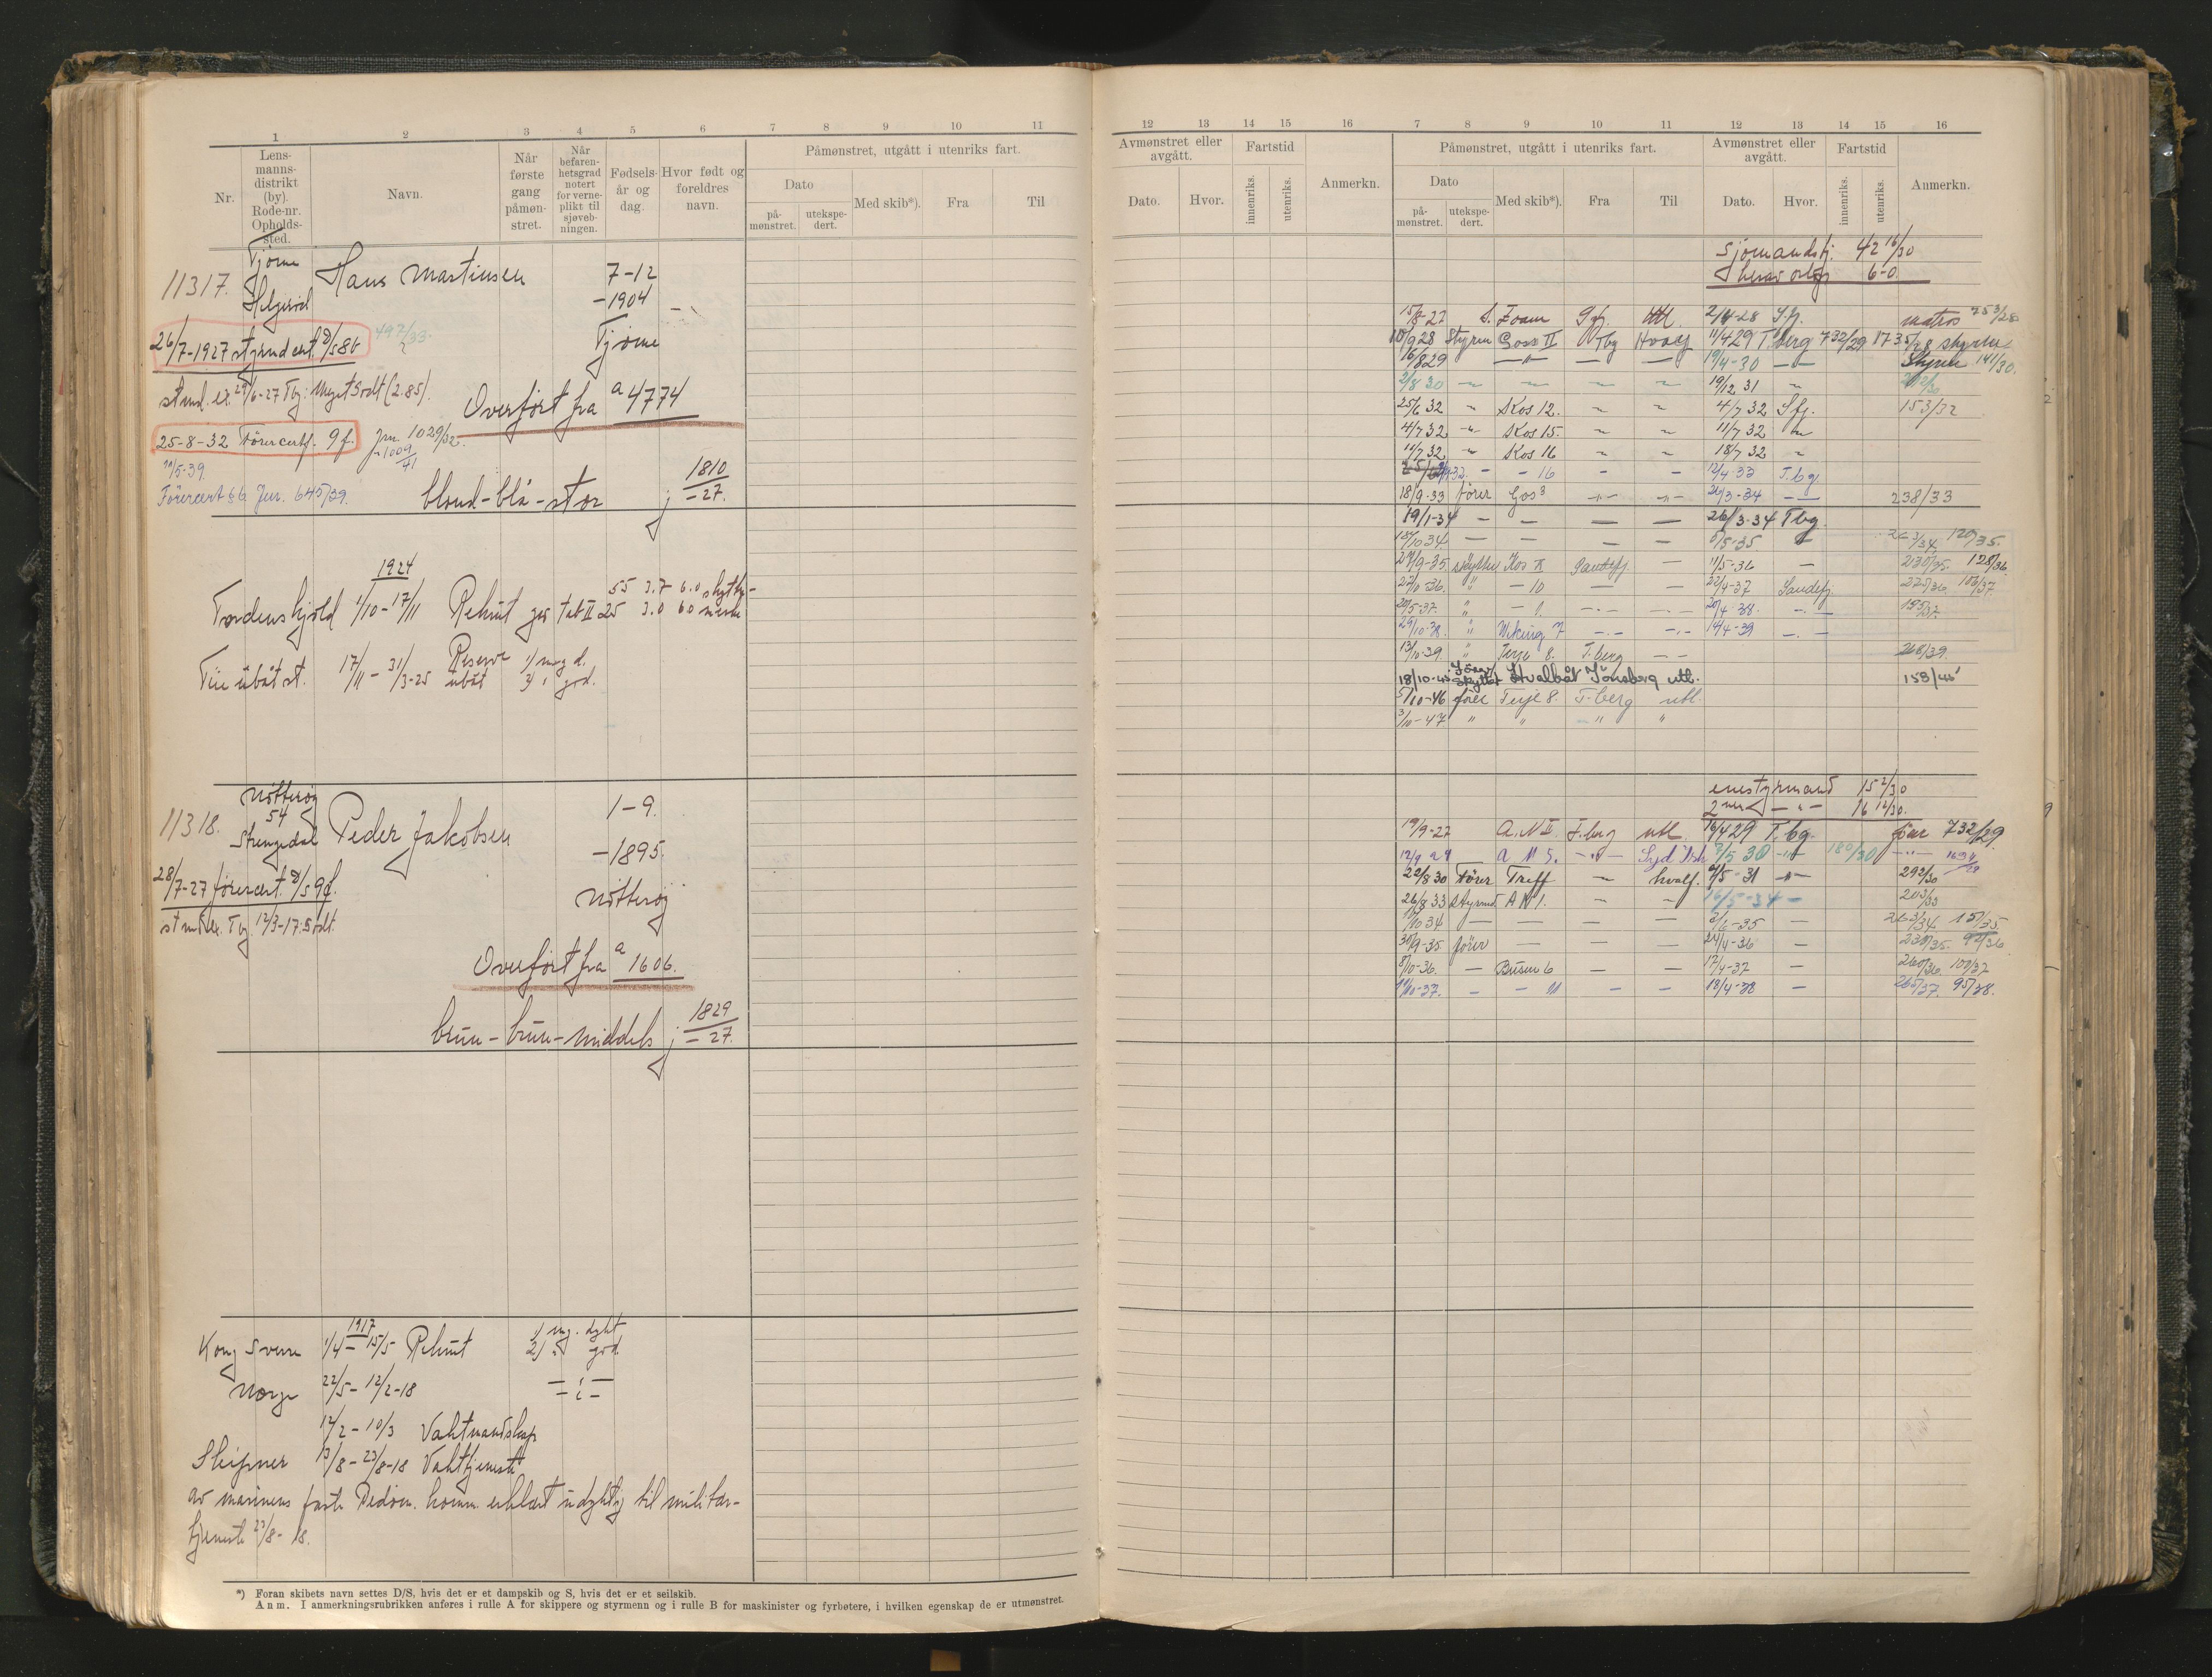 1 2 3 4 5 6 7 8 9 10 11
Nr.
Lens-
manns-
distrikt
(by).
Rode-nr.
Opholds-
sted.
Navn.
Når
første
gang
påmøn-
stret.
Når
befaren-
hetsgrad
notert
for verne-
plikt til
sjøveb-
ningen.
Fødsels-
år og
dag.
Hvor født og
foreldres
navn.
Påmønstret, utgått i utenriks fart.
Dato
på-
mønstret.
utekspe-
dert.
Med skib*).
Fra
Til
11317.
Tjøme
Helgerød
Hans Martinsen
7-12
-1904
Tjøme
26/7-1927 styrmd cert. D/S 86
497/33.
stmd. ex. 29/6-27 Tbg: Meget Godt (2.85).
Overført fra a 4774
25-8-32 Førercertf. 9 f. Jrn. 1029/32.
1009/41
11/5-39.
Førercert 66 Jnr. 645/39.
blond-blå-stor
j 1810/-27.
1924
Tordenskjold 1/10 - 17/11 Rekrut
55 3.7 6.0
25 3.0 6.0
Tie übåt st. 17/11 - 31/3-25 Reserve
übåt
1/ meg d.
3/ " god.
11318.
Nøtterøy
54
Strengsdal
Peder Jakobsen
1-9.
-1895.
Nøtterøy
28/7-27 førercert. D/S 9 f.
stmd ex. Tbg. 12/3-17. Godt.
Overført fra a 1606.
brun-brun-middels
j 1829/-27.
1917
Kong Sverre 1/4 - 15/5 Rekrut 1/ mg. dygt
2/ " god.
Norge 22/5 - 12/2-18 - " -
12/2 - 10/3 Vaktmandskap
Sleipner 13/8 - 23/8-18 Vakttjeneste
av marinens faste Bedøm. komm. erklært udyktig til militær-
tjeneste 23/8-18.
*) Foran skibets navn settes D/S, hvis det er et dampskib og S, hvis det er et seilskib.
Anm. I anmerkningsrubrikken anføres i rulle A for skippere og styrmenn og i rulle B for maskinister og fyrbøtere, i hvilken egenskap de er utmønstret.
12 13 14 15 16 7 8 9 10 11 12 13 14 15 16
Avmønstret eller
avgått.
Dato.
Hvor.
Fartstid
innenriks.
utenriks.
Anmerkn.
Påmønstret, utgått i utenriks fart.
Dato
på-
mønstret.
utekspe-
dert.
Med skib*).
Fra
Til
Avmønstret eller
avgått.
Dato.
Hvor.
Fartstid
innenriks.
utenriks.
Anmerkn.
Sjømandstj. 42 16/30
herav 6-0
15/8-27 S. Foam Sfj. Utl. 2/4-28 Sfj. matros 753/28
18/9 28 Styrm Gos II Tbg Hvalf 11/4 29 T.berg 732/29 1735/28 styrm
16/8 29 - " - - - 19/4-30 - " - Styrm 141/30.
2/8 30 - - - - 19/12 31 -
25/6 32 - Kos 12. - - 4/7 32 Sfj. 153/32
4/7 32 - Kos 15. - - 11/7 32 -
11/7 32 - Kos 16 - - 18/7 32 -
32. - - 16 - - 12/4-33 T.bg.
18/9-33 fører Gos 3 - " - - " - 26/3-34 - 238/33
19/1-34 - - - - 26/3-34 Tbg.
18/10 34 - - - - 5/5-35 - 263/34 120/35.
27/9-35. skytter Kos II Sandefj. - 11/5-36 - 230/35. 128/36
22/10-36. " - 10 - - 22/4-37 Sandefj. 225/36 106/37.
20/5-37. " - 9. - - 20/4-38. - 195/37.
29/10-38. " Viking 7 - - 14/4-39 -
13/10-39. " Terje 8. T.berg - - 268/39.
18/10-45 Fører skytter Hvalbåt Tönsberg utl. 158/45
5/10-46 fører Terje 8. T.berg utl.
3/10-47 " " " "
enestyrmand 15 2/30
2nen - " - 16 12/30.
19/9-27 A.N II T.berg utl. 16/4 29 T.bg. fører 732/29.
12/9 29 A N 5. - " - Syd Ish 7/5 30 - " - 180/30 - " -
22/8 30 Fører Treff - hvalf. 9/5-31 - " - 292/30
26/8 33 styrmd. A N 1. - - 16/5-34 - 203/33
10/10 34 - - - - 2/6-35 - 263/34. 151/35.
30/9-35 fører - - - 24/4-36 - 230/35. 92/36
8/10-36. - Busen 6 - - 17/4-37 - 260/36. 100/37
11/10-37. - - 11 - - 18/4-38 - 265/37. 95/38.